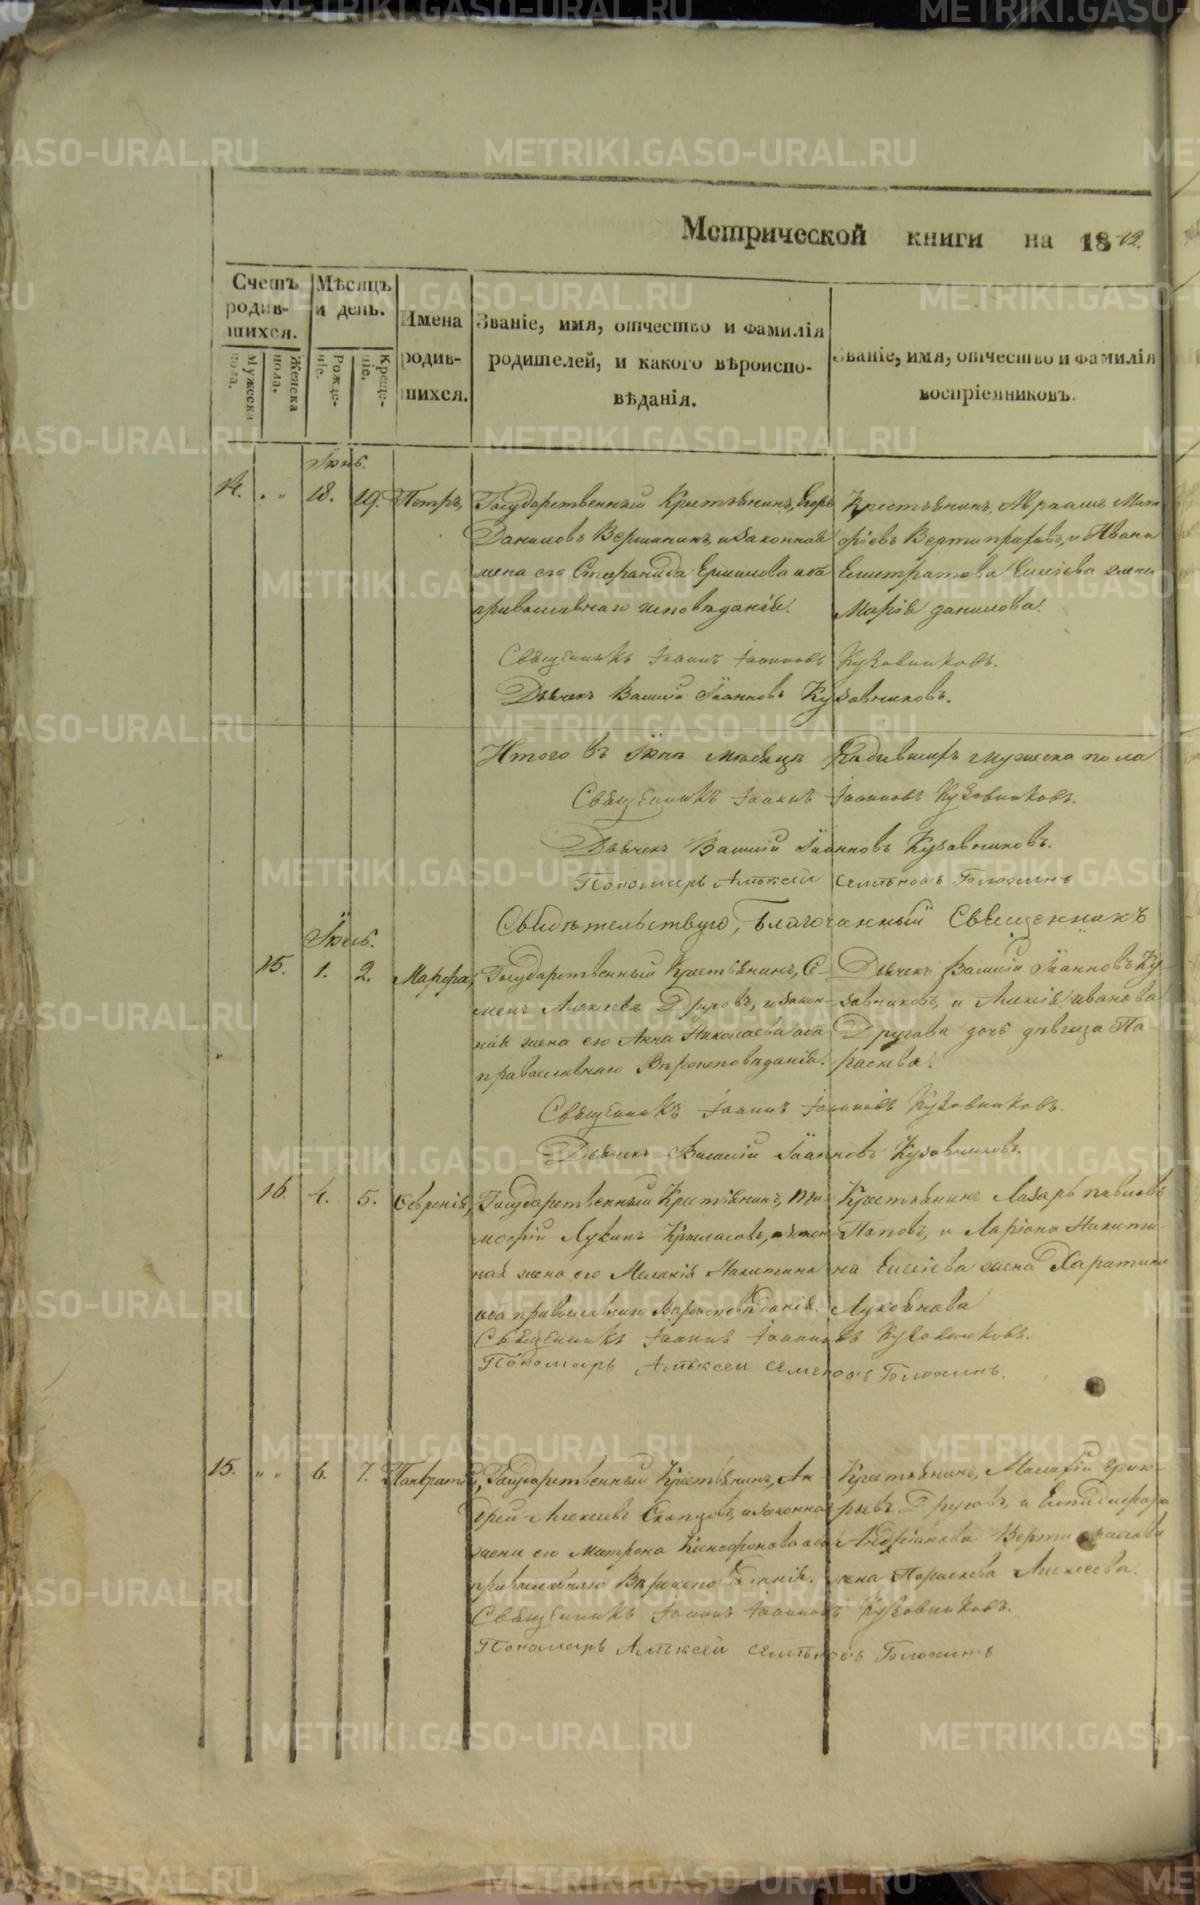 Метрической книги на 1842.
Счетъ родив-шихся.
Мужеска пола.
Женска пола.
Мѣсяцъ и день.
Рожде-ніе.
Креще-ніе.
Имена родив-шихся.
Званіе, имя, отчество и фамилія
родителей, и какого вѣроиспо-
вѣданія.
Званіе, имя, отчество и фамилія
воспріемниковъ.
Іюнь.
14. " " 18. 19. Петръ,
Государственный Крестьянинъ, Егоръ
Даниловъ Вершининъ, и законная
жена его Стефанида Ермилова оба
православнаго исповѣданія.
Крестьянинъ, Авраамъ Мат-
фіевъ Вертипраховъ, и Ивана
Елистратова Елисѣева жена
Марія данилова.
Священникъ Іоаннъ Іоанновъ Кузовниковъ.
Дьячекъ Василій Іоанновъ Кузовниковъ.
Итого въ Іюнѣ мѣсяцѣ Родившихъ мужеска пола
Священникъ Іоаннъ Іоанновъ Кузовниковъ.
Дьячекъ Василій Іоанновъ Кузовниковъ.
Пономарь Алѣксѣй Семѣновъ
Свидѣтельствую, Благочинный Священникъ
Іюль.
15. 1. 2. Марфа,
Государственный Крестьянинъ, Се-
менъ Алексѣевъ Друговъ, и закон-
ная жена его Анна Николаева оба
православнаго Вѣроисповѣданія.
Дьячекъ Василій Іоанновъ Ку-
зовниковъ, и Алексія иванова
Другова дочь дѣвица Па
раскева.
Священникъ Іоаннъ Іоанновъ Кузовниковъ.
Дьячекъ Василій Іоанновъ Кузовниковъ.
16. 4. 5. Евфенія,
Государственный Крестьянинъ, Ти-
мофій Лукинъ и закон-
ная жена его Меланія Никитина
оба православнаго Вѣроисповѣданія.
Крестьянинъ Лазарь павловъ
Поповъ, и Ларіона Никити-
на Елисѣева жена Харитина
Лукоянова
Священникъ Іоаннъ Іоанновъ Кузовниковъ.
Пономарь Алѣксей Семеновъ
15. " " 6. 7. Панкратій,
Государственный Крестьянинъ, Ан-
дрей Алексѣевъ и законная
жена его Матрона Ксенофонтова оба
православнаго Вѣроисповѣданія.
Крестьянинъ,
Друговъ, и Епидифора
Андріанова Вертипрахова
жена Параскева Алексѣева.
Священникъ Іоаннъ Іоанновъ Кузовниковъ.
Пономарь Алѣксѣй Семѣновъ
METRIKI.GASO-URAL.RU